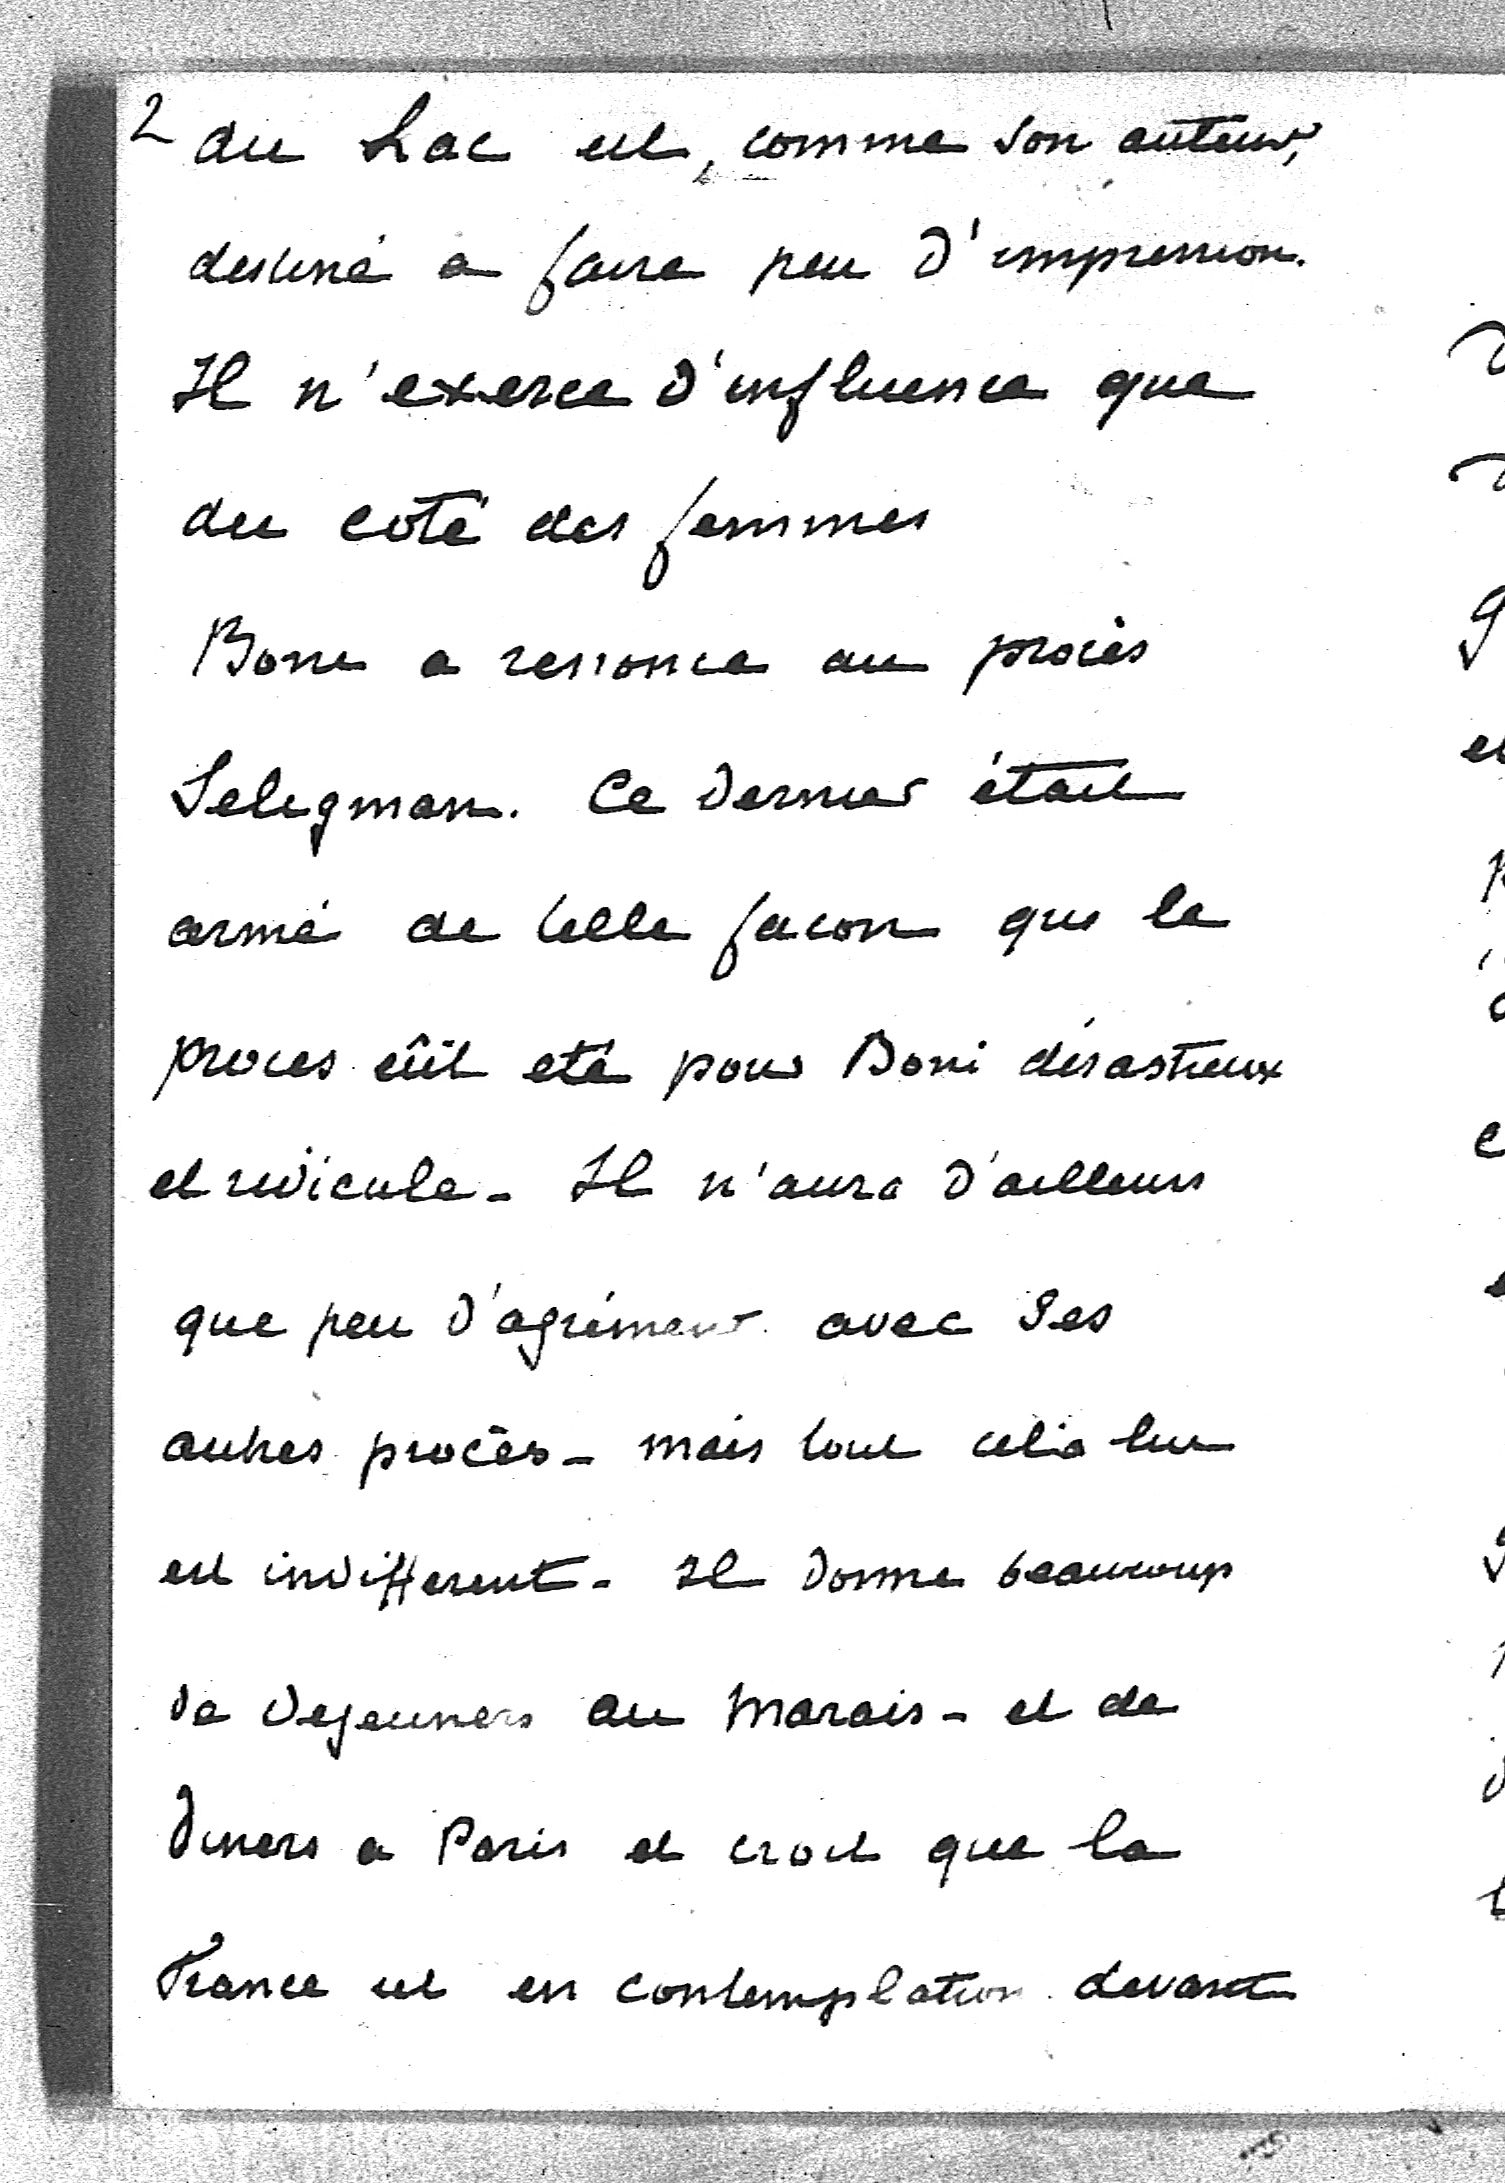 2 du Lac est, comme son auteur,
destiné a faire peu d'impression.
Il n'exerce d'influence que
du coté des femmes
Boni a renoncé au procès
Seligmann. Ce dernier était
armé de telle facon que le
proces eût eté pour Boni désastreux
et ridicule - Il n'aura d'ailleurs
que peu d'agrément avec ses
autres procès - mais tout cela lui
est indifferent - Il donne beaucoup
de dejeuners au Marais - et de
diners a Paris et croit que la
France est en contemplation devant